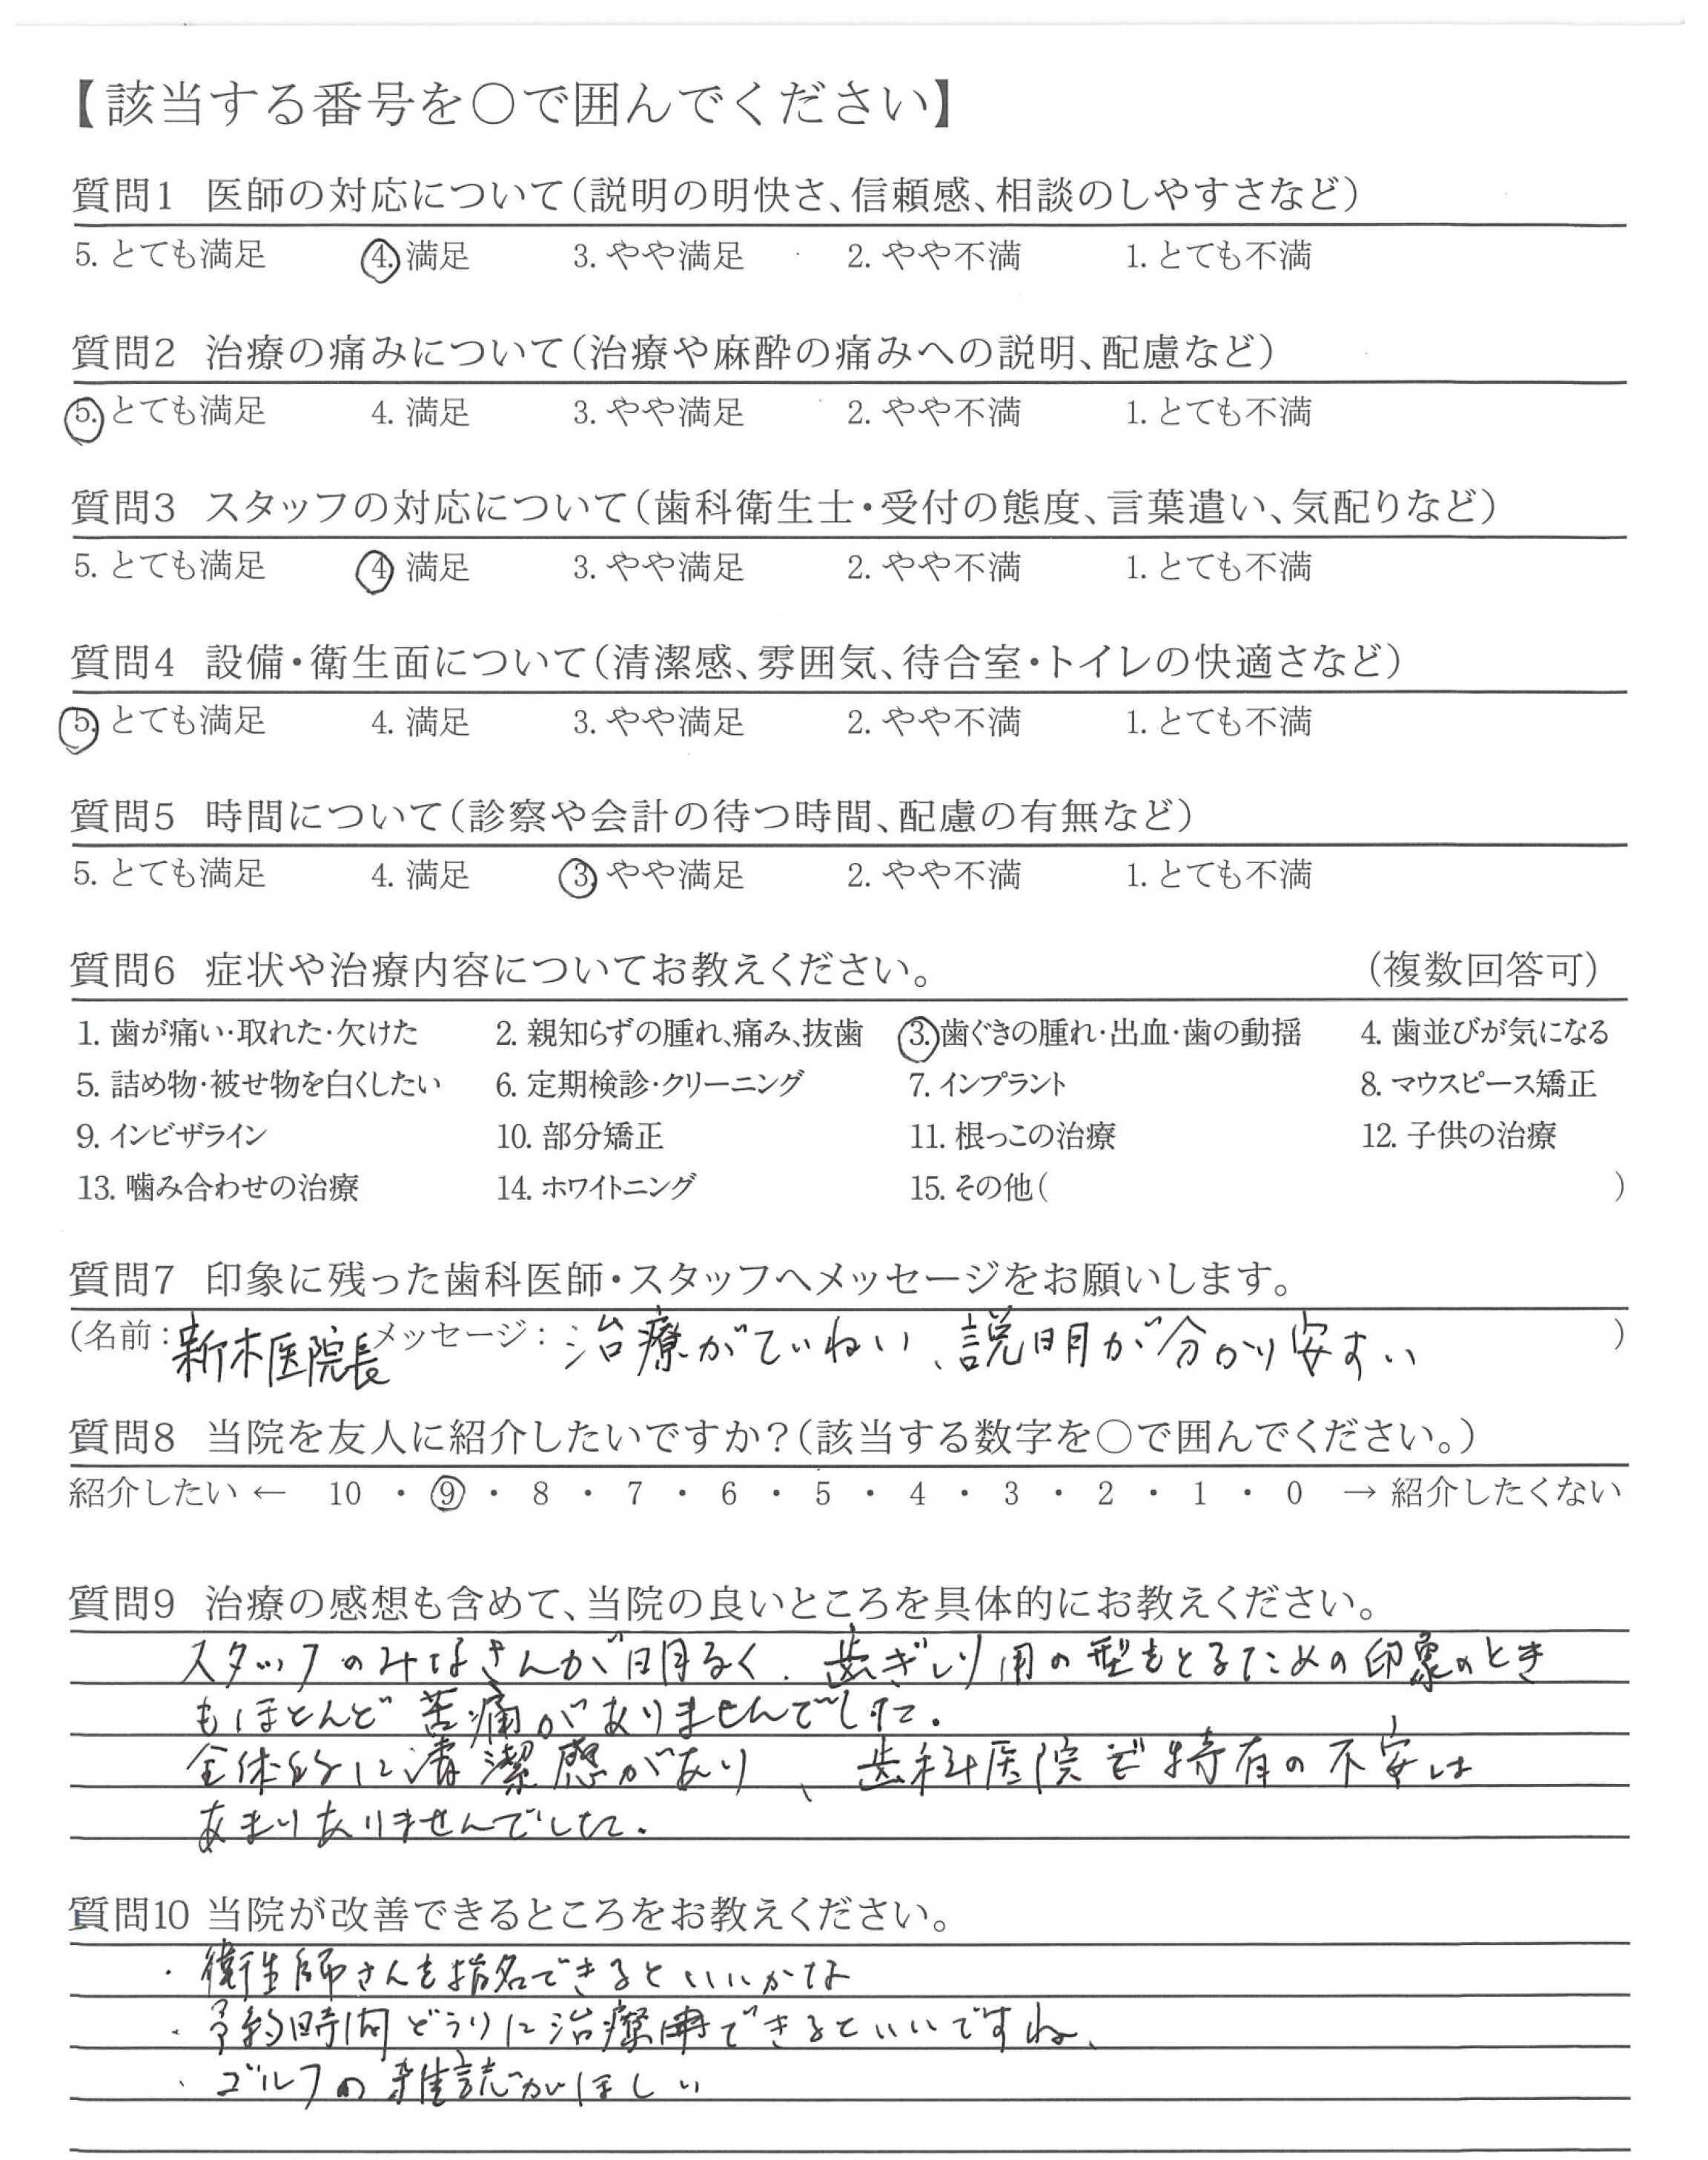 【該当する番号を○で囲んでください】
質問1 医師の対応について(説明の明快さ、信頼感、相談のしやすさなど)
5. とても満足 4. 満足 3. やや満足 2. やや不満 1. とても不満
質問2 治療の痛みについて(治療や麻酔の痛みへの説明、配慮など)
5. とても満足 4. 満足 3. やや満足 2. やや不満 1. とても不満
質問3 スタッフの対応について(歯科衛生士・受付の態度、言葉遣い、気配りなど)
5. とても満足 4 満足 3. やや満足 2. やや不満 1. とても不満
質問4 設備・衛生面について(清潔感、雰囲気、待合室・トイレの快適さなど)
5. とても満足 4. 満足 3. やや満足 2. やや不満 1. とても不満
質問5 時間について(診察や会計の待つ時間、配慮の有無など)
5. とても満足 4. 満足 3. やや満足 2. やや不満 1. とても不満
質問6 症状や治療内容についてお教えください。 (複数回答可)
1. 歯が痛い・取れた・欠けた 2. 親知らずの腫れ、痛み、抜歯 3. 歯ぐきの腫れ・出血・歯の動揺 4. 歯並びが気になる
5. 詰め物・被せ物を白くしたい 6. 定期検診・クリーニング 7. インプラント 8. マウスピース矯正
9. インビザライン 10. 部分矯正 11. 根っこの治療 12. 子供の治療
13. 噛み合わせの治療 14. ホワイトニング 15. その他( )
質問7 印象に残った歯科医師・スタッフへメッセージをお願いします。
(名前：新木医院長 メッセージ：治療がていねい、説明が分かり安すい )
質問8 当院を友人に紹介したいですか?(該当する数字を○で囲んでください。)
紹介したい ← 10 ・ 9 ・ 8 ・ 7 ・ 6 ・ 5 ・ 4 ・ 3 ・ 2 ・ 1 ・ 0 → 紹介したくない
質問9 治療の感想も含めて、当院の良いところを具体的にお教えください。
スタッフのみなさんが明るく、歯ぎしり用の型をとるための印象のとき
もほとんど苦痛がありませんでした。
全体的に清潔感があり、歯科医院で特有の不安は
あまりありませんでした。
質問10 当院が改善できるところをお教えください。
・衛生師さんも指名できるといいかな
・予約時間どうりに治療できるといいですね、
・ゴルフの雑誌がほしい